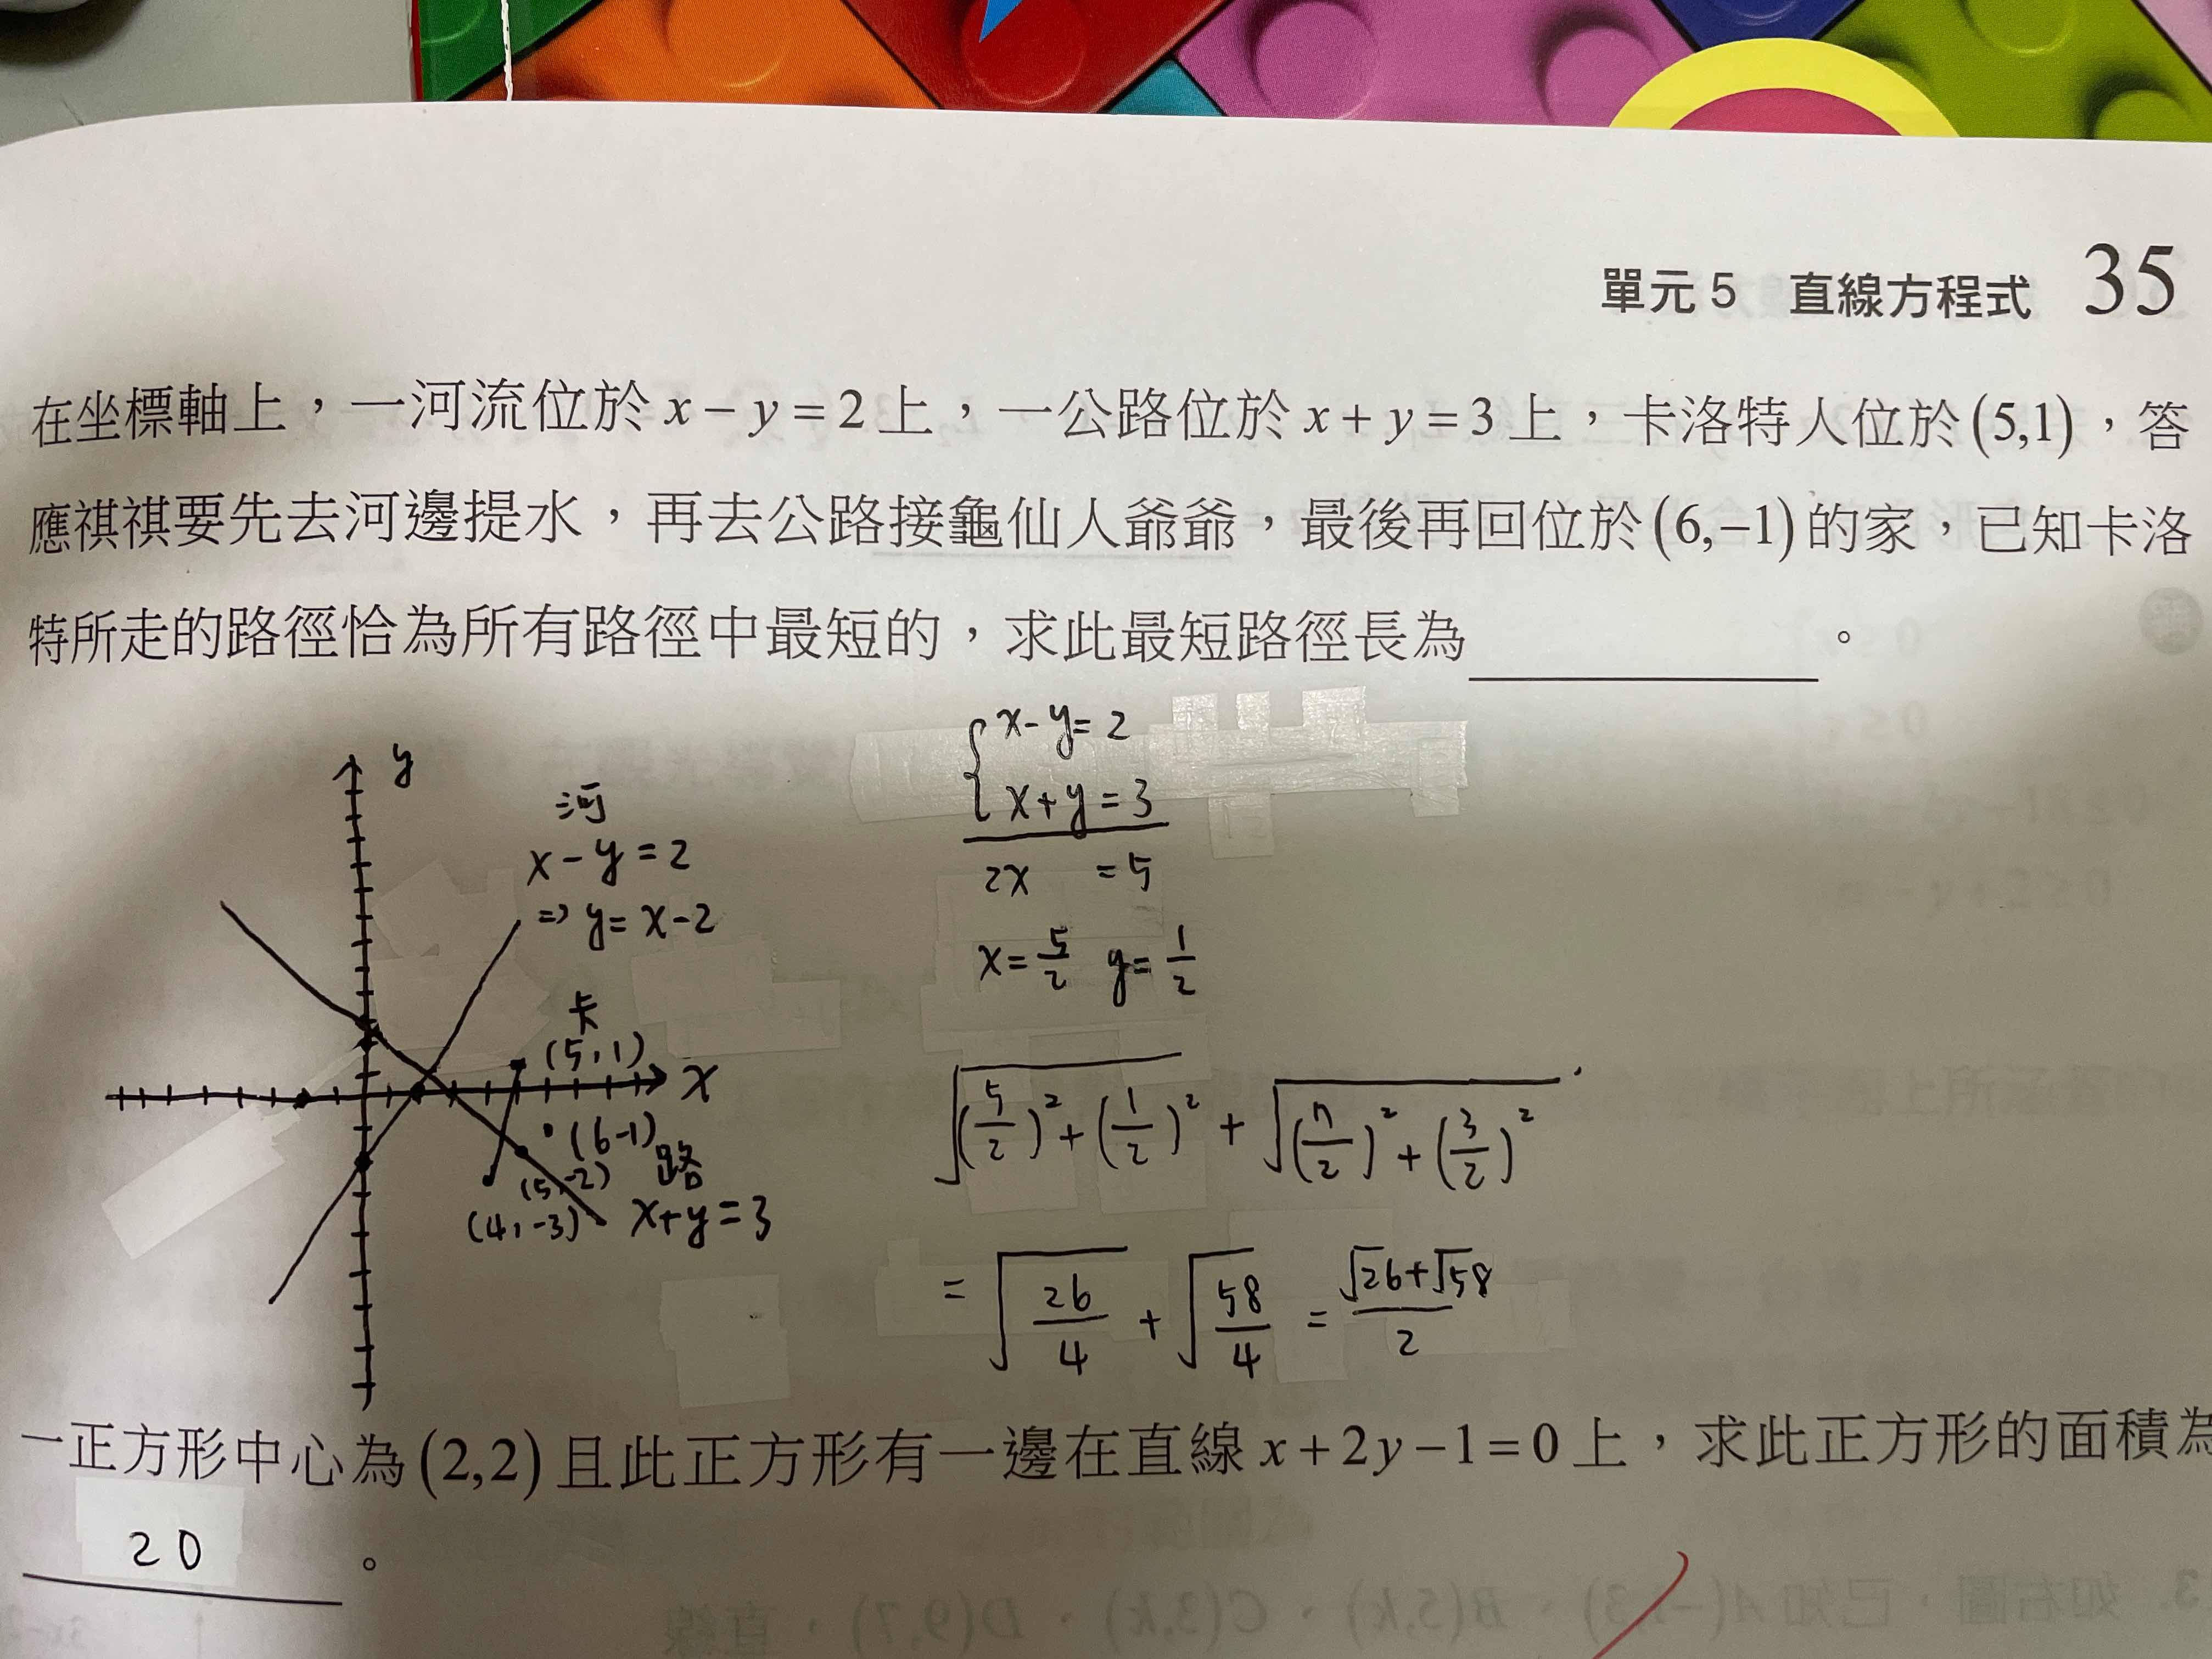 單元5 直線方程式 35
在坐標軸上，一河流位於 x − y = 2 上，一公路位於 x + y = 3 上，卡洛特人位於 (5,1)，答
應祺祺要先去河邊提水，再去公路接龜仙人爺爺，最後再回位於 (6,−1) 的家，已知卡洛
特所走的路徑恰為所有路徑中最短的，求此最短路徑長為________。
y
河
x − y = 2
⇒ y = x − 2
卡
(5,1)
x
(6-1)
路
(5,-2)
(4,-3)
x+y=3
{ x-y=2
x+y=3
2x =5
x=5/2 y=1/2
√((5/2)²+(1/2)²) + √((7/2)²+(3/2)²)
= √(26/4) + √(58/4) = (√26+√58)/2
一正方形中心為 (2,2) 且此正方形有一邊在直線 x + 2y − 1 = 0 上，求此正方形的面積為
20 。